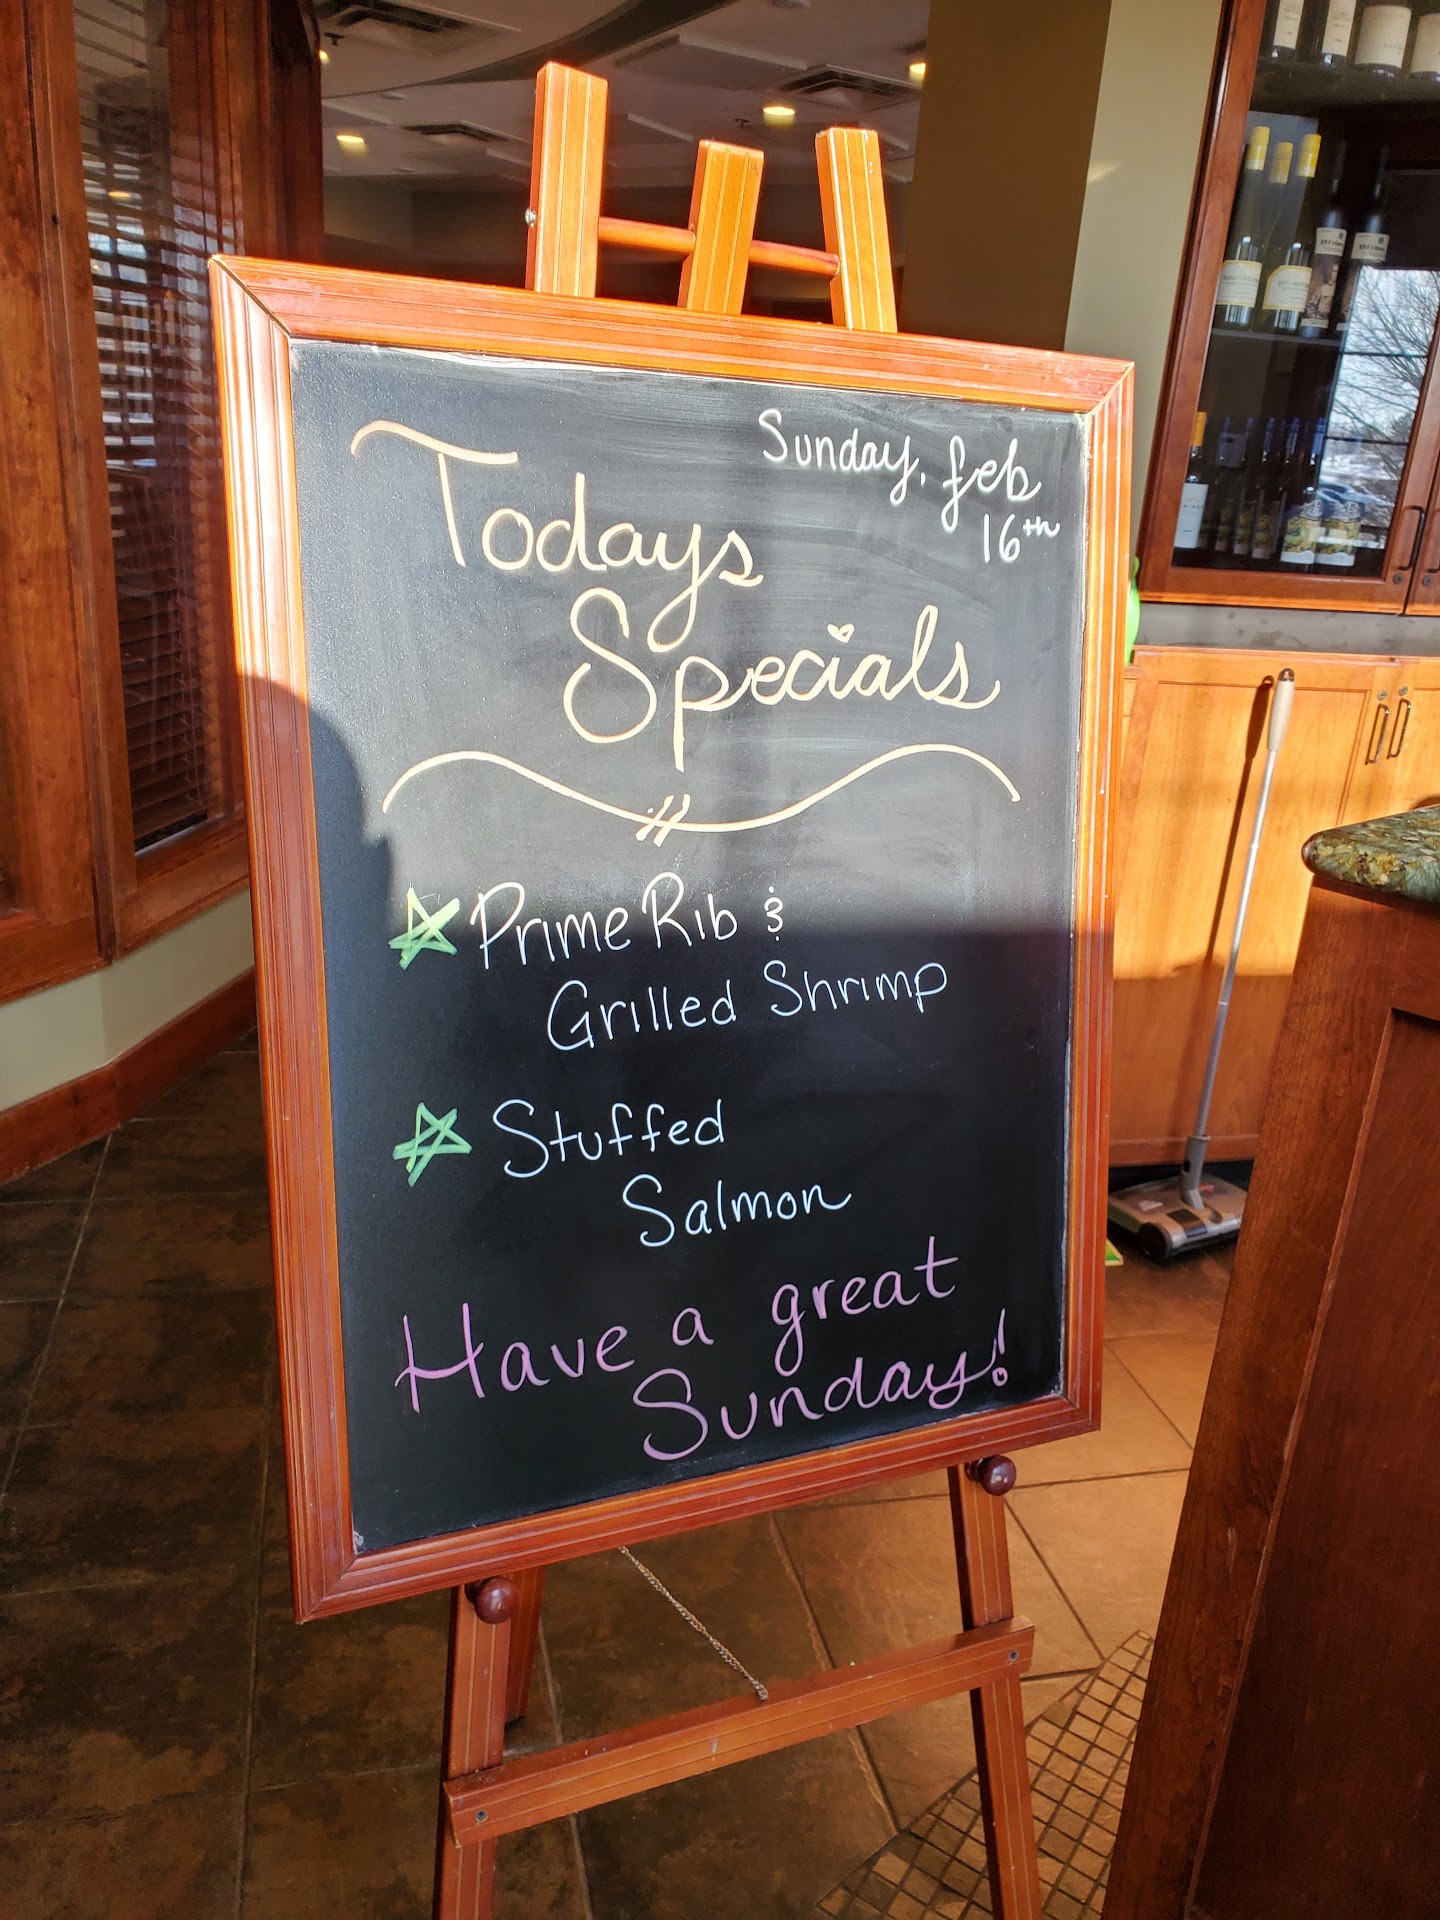 Sunday, Feb
16th
Todays
Specials
Prime Rib &
Grilled Shrimp
Stuffed
Salmon
Have a great
Sunday!